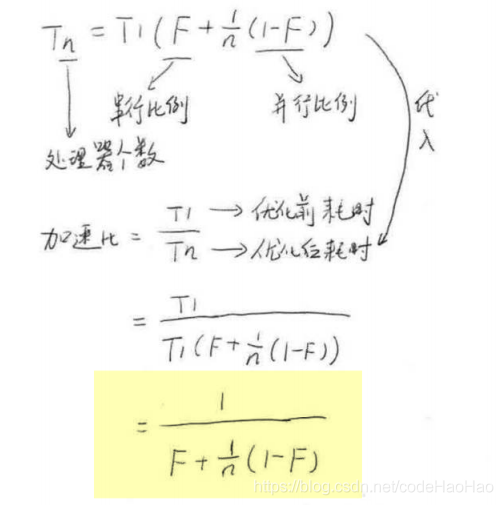 Tn = T1(F+1/n(1-F))
串行比例
并行比例
代入
处理器个数
加速比 = T1/Tn
→优化前耗时
→优化后耗时
= T1/T1(F+1/n(1-F))
= 1/F+1/n(1-F)
https://blog.csdn.net/codeHaoHao